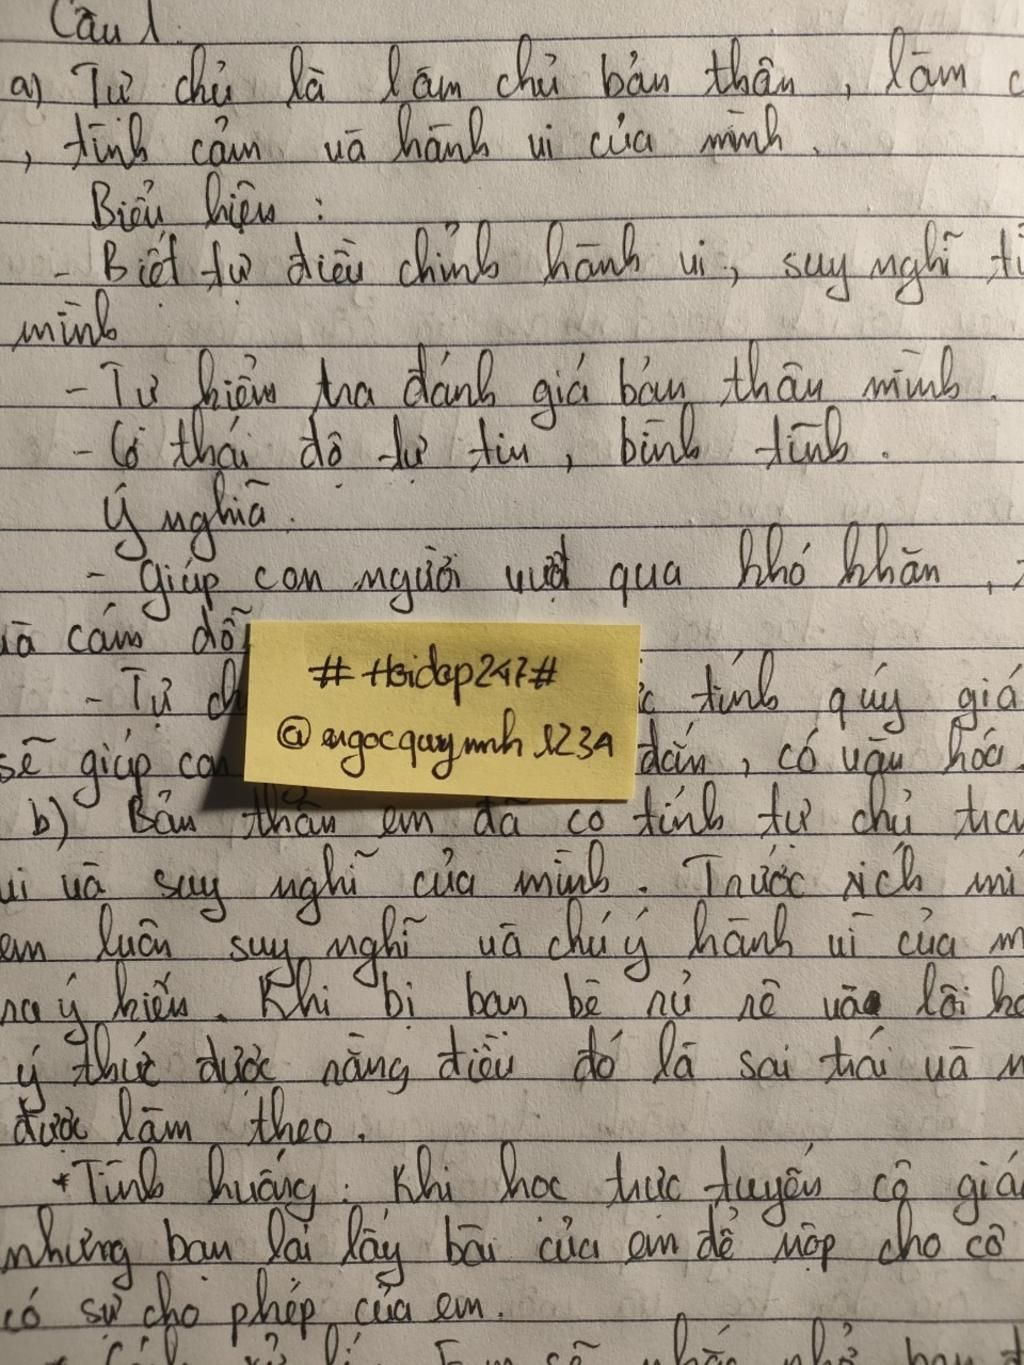 Câu 1.
a) Tự chủ là làm chủ bản thân, làm c
, tình cảm và hành vi của mình.
Biểu hiện :
- Biết tự điều chỉnh hành vi, suy nghĩ
mình
- Tự kiểm tra đánh giá bản thân mình.
- Có thái độ tự tin, bình tĩnh.
Ý nghĩa.
- Giúp con người vượt qua khó khăn,
và cám dỗ
- Tự ch
tính quý giá
sẽ giúp con
đắn, có văn hóa.
#
@
b) Bản thân em đã có tính tự chủ
vi và suy nghĩ của mình. Trước xích mí
em luôn suy nghĩ và chú ý hành vi của m
ra ý kiến. Khi bị bạn bè rủ rê vào lối
ý thức được rằng điều đó là sai trái và
được làm theo.
*Tình huống: Khi học trực tuyến cô giá
nhưng bạn lại lấy bài của em để nộp cho cô
có sự cho phép của em.